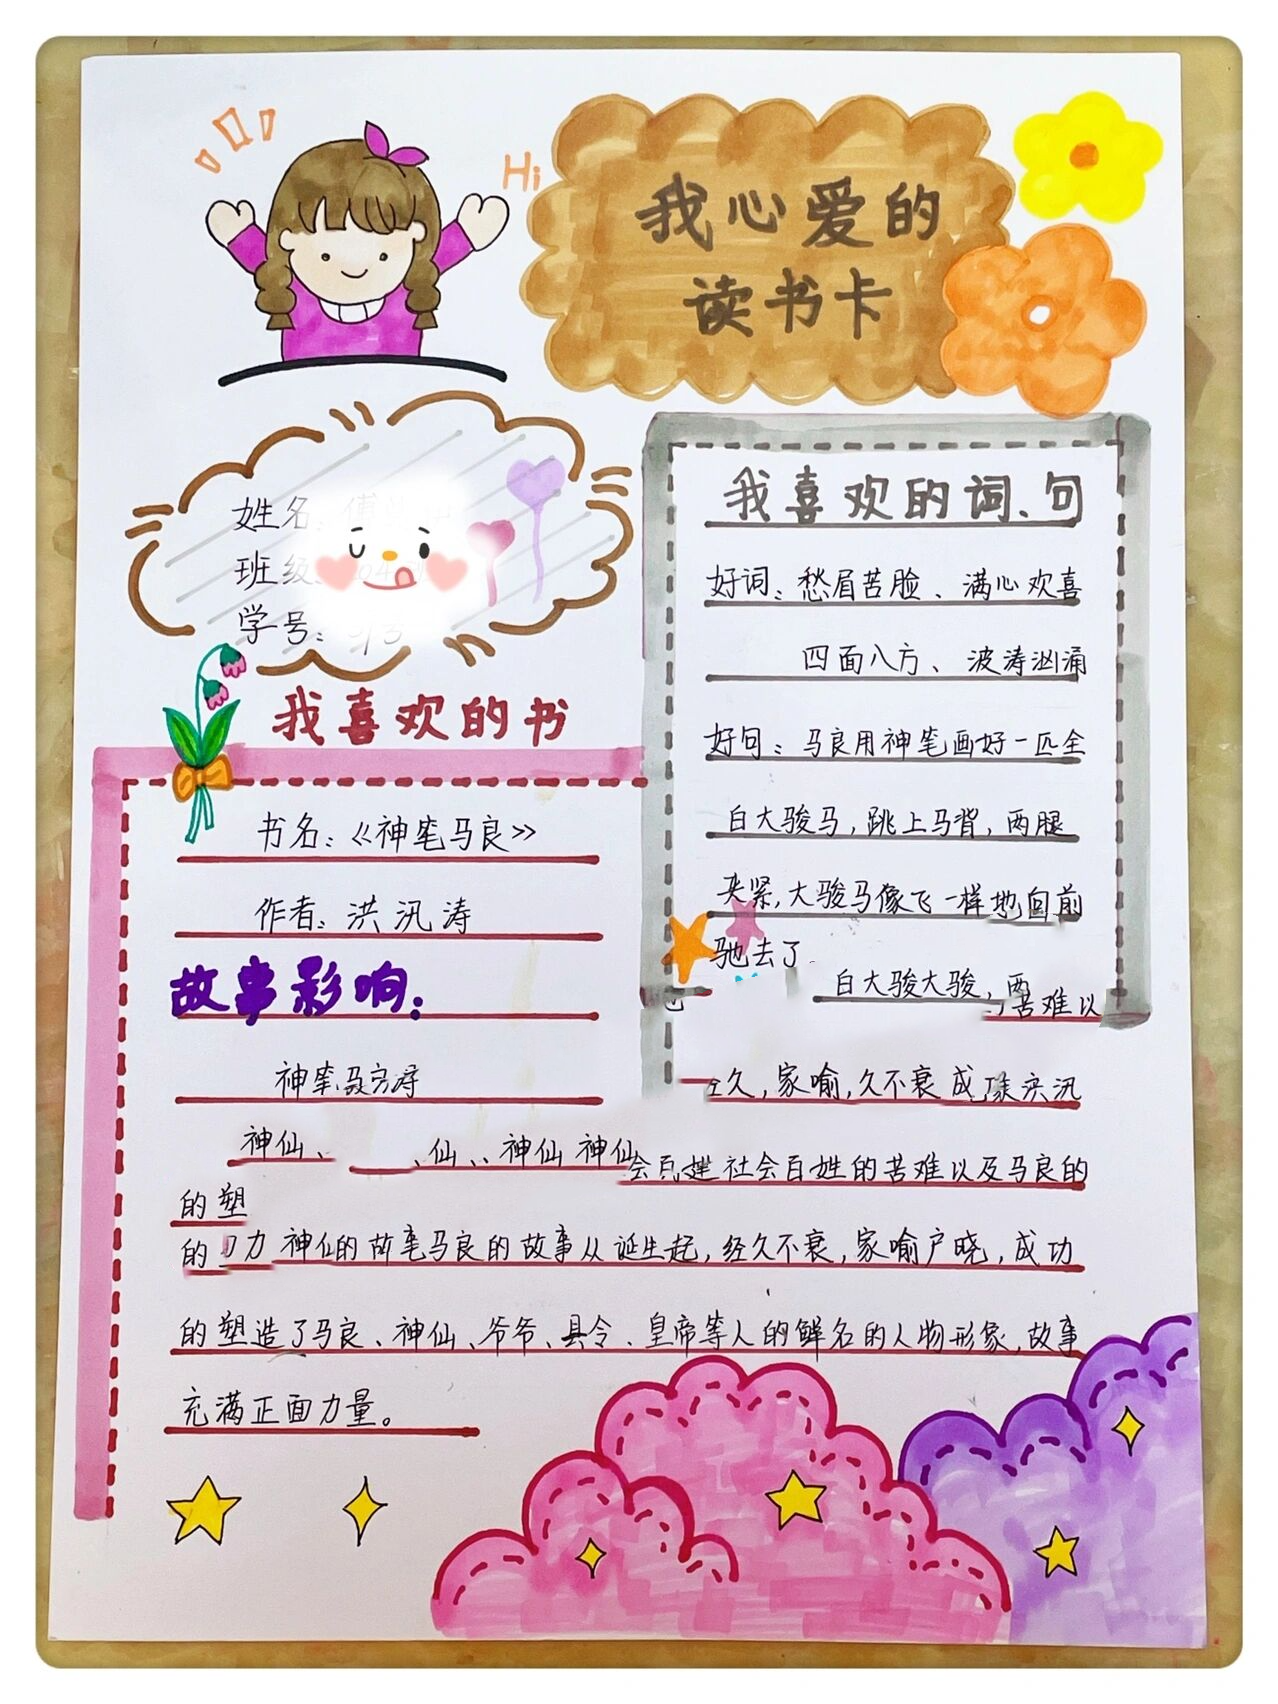 Hi
我心爱的
读书卡
姓名：
班级：
学号：
我喜欢的书
书名：《神笔马良》
作者：洪汛涛
故事影响：
我喜欢的词、句
好词：愁眉苦脸、满心欢喜
四面八方、波涛汹涌
好句：马良用神笔画好一匹全
白大骏马，跳上马背，两腿
夹紧，大骏马像飞一样地向前
驰去了
白大骏大骏，两
苦难以
神笔
久，家喻，久不衰成
神仙、仙、、神仙神仙
社会百姓的苦难以及马良的
的塑
的 力神仙的故事马良的故事从诞生起，经久不衰，家喻户晓，成功
的塑造了马良、神仙、爷爷、县令、皇帝等人的鲜名的人物形象，故事
充满正面力量。